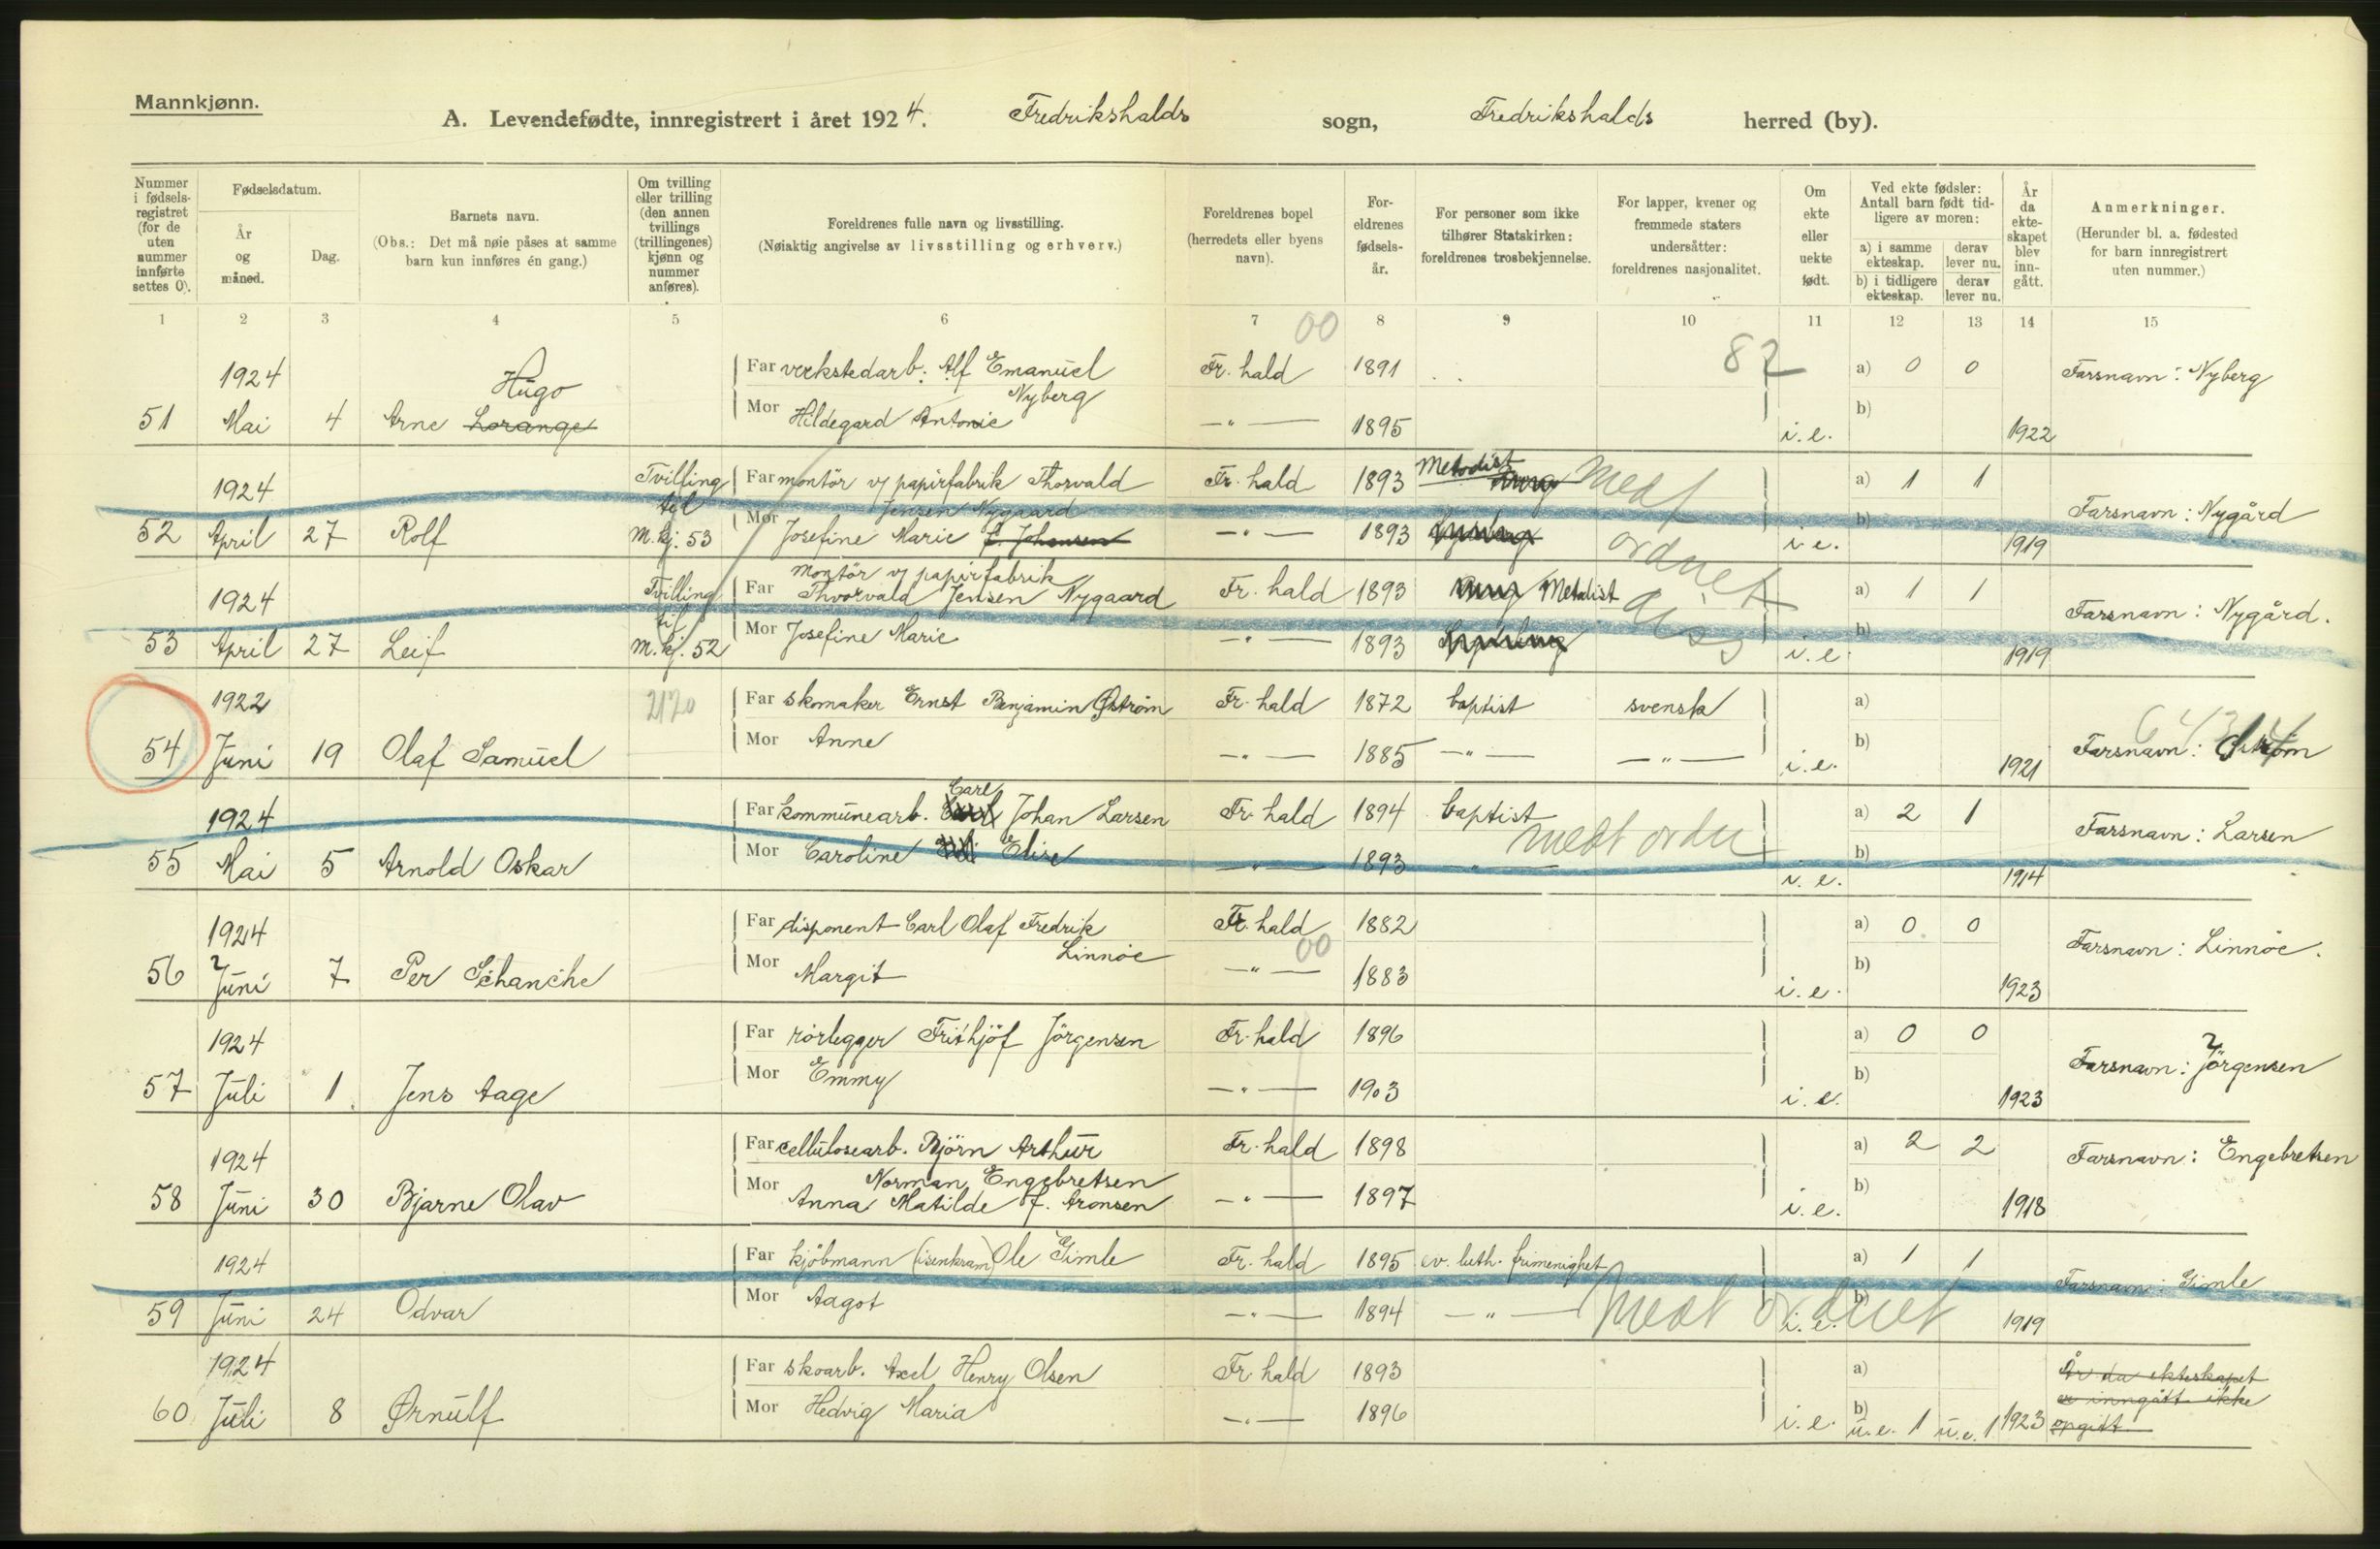 Mannkjønn.
A. Levendefødte, innregistrert i året 1924. Fredrikshalds sogn, Fredrikshalds herred (by).
Nummer i fødsels-registret (for de uten nummer innførte settes 0).
Fødselsdatum.
År og måned.
Dag.
Barnets navn.
(Obs.: Det må nøie påses at samme barn kun innføres én gang.)
Om tvilling eller trilling (den annen tvillings (trillingenes) kjønn og nummer anføres).
Foreldrenes fulle navn og livsstilling.
(Nøiaktig angivelse av livsstilling og erhverv.)
Foreldrenes bopel (herredets eller byens navn).
For-eldrenes fødsels-år.
For personer som ikke tilhører Statskirken: foreldrenes trosbekjennelse.
For lapper, kvener og fremmede staters undersåtter: foreldrenes nasjonalitet.
Om ekte eller uekte født.
Ved ekte fødsler: Antall barn født tid-ligere av moren:
a) i samme ekteskap.
derav lever nu.
b) i tidligere ekteskap.
derav lever nu.
År da ekte-skapet blev inn-gått.
Anmerkninger.
(Herunder bl. a. fødested for barn innregistrert uten nummer.)
1 2 3 4 5 6 7 8 9 10 11 12 13 14 15
00
82
1924 Hugo Far verkstedarb. Alf Emanuel Fr. hald 1891 a) 0 0 Farsnavn: Nyberg
Nyberg
51 Mai 4 Arne Lorange Mor Hildegard Antonie —"— 1895 i.e. b) 1922
1924 Tvilling Far montör v/ papirfabrik Thorvald Fr. hald 1893 Metodist Medt a) 1 1 Farsnavn: Nygård
til Jensen Nygaard
52 April 27 Rolf M.kj. 53 Mor Josefine Marie f. Johansen —"— 1893 ordnet i.e. b) 1919
1924 Tvilling Far montör v/ papirfabrik
Thorvald Jensen Nygaard Fr. hald 1893 Metodist a) 1 1 Farsnavn: Nygård.
til
53 April 27 Leif M.kj. 52 Mor Josefine Marie —"— 1893 diss i.e. b) 1919
1922 2170 Far skomaker Ernst Benjamin Øström Fr. hald 1872 baptist svensk a)
54 Juni 19 Olaf Samuel Mor Anne —"— 1885 —"— —"— i.e. b) 1921 Farsnavn: Öström
1924 Far kommunearb. Carl Johan Larsen Fr. hald 1894 baptist a) 2 1 Farsnavn: Larsen
medt ordn
55 Mai 5 Arnold Oskar Mor Caroline Elise —"— 1893 " i.e. b) 1914
1924 Far disponent Carl Olaf Fredrik Fr. hald 1882 a) 0 0 Farsnavn: Linnöe.
Linnöe 00
56 Juni 7 Per Schanche Mor Margit —"— 1883 i.e. b) 1923
1924 Far rörlegger Frithjöf Jörgensen Fr. hald 1896 a) 0 0 Farsnavn: Jörgensen
57 Juli 1 Jens Aage Mor Emmy —"— 1903 i.e. b) 1923
1924 Far cellulosearb. Björn Arthur Fr. hald 1898 a) 2 2 Farsnavn: Engebretsen
Norman Engebretsen
58 Juni 30 Bjarne Olav Mor Anna Matilde f. Aronsen —"— 1897 i.e. b) 1918
1924 Far kjöbmann (isenkram) Ole Gimle Fr. hald 1895 ev. luth. frimenighet a) 1 1 Farsnavn: Gimle
59 Juni 24 Odvar Mor Aagot —"— 1894 —"— Medt ordnet i.e. b) 1919
1924 Far skoarb. Axel Henry Olsen Fr. hald 1893 a) År da ekteskapet
er inngått ikke
60 Juli 8 Ørnulf Mor Hedvig Maria —"— 1896 i.e. b) u.e. 1 u.e. 1 1923 opgitt.